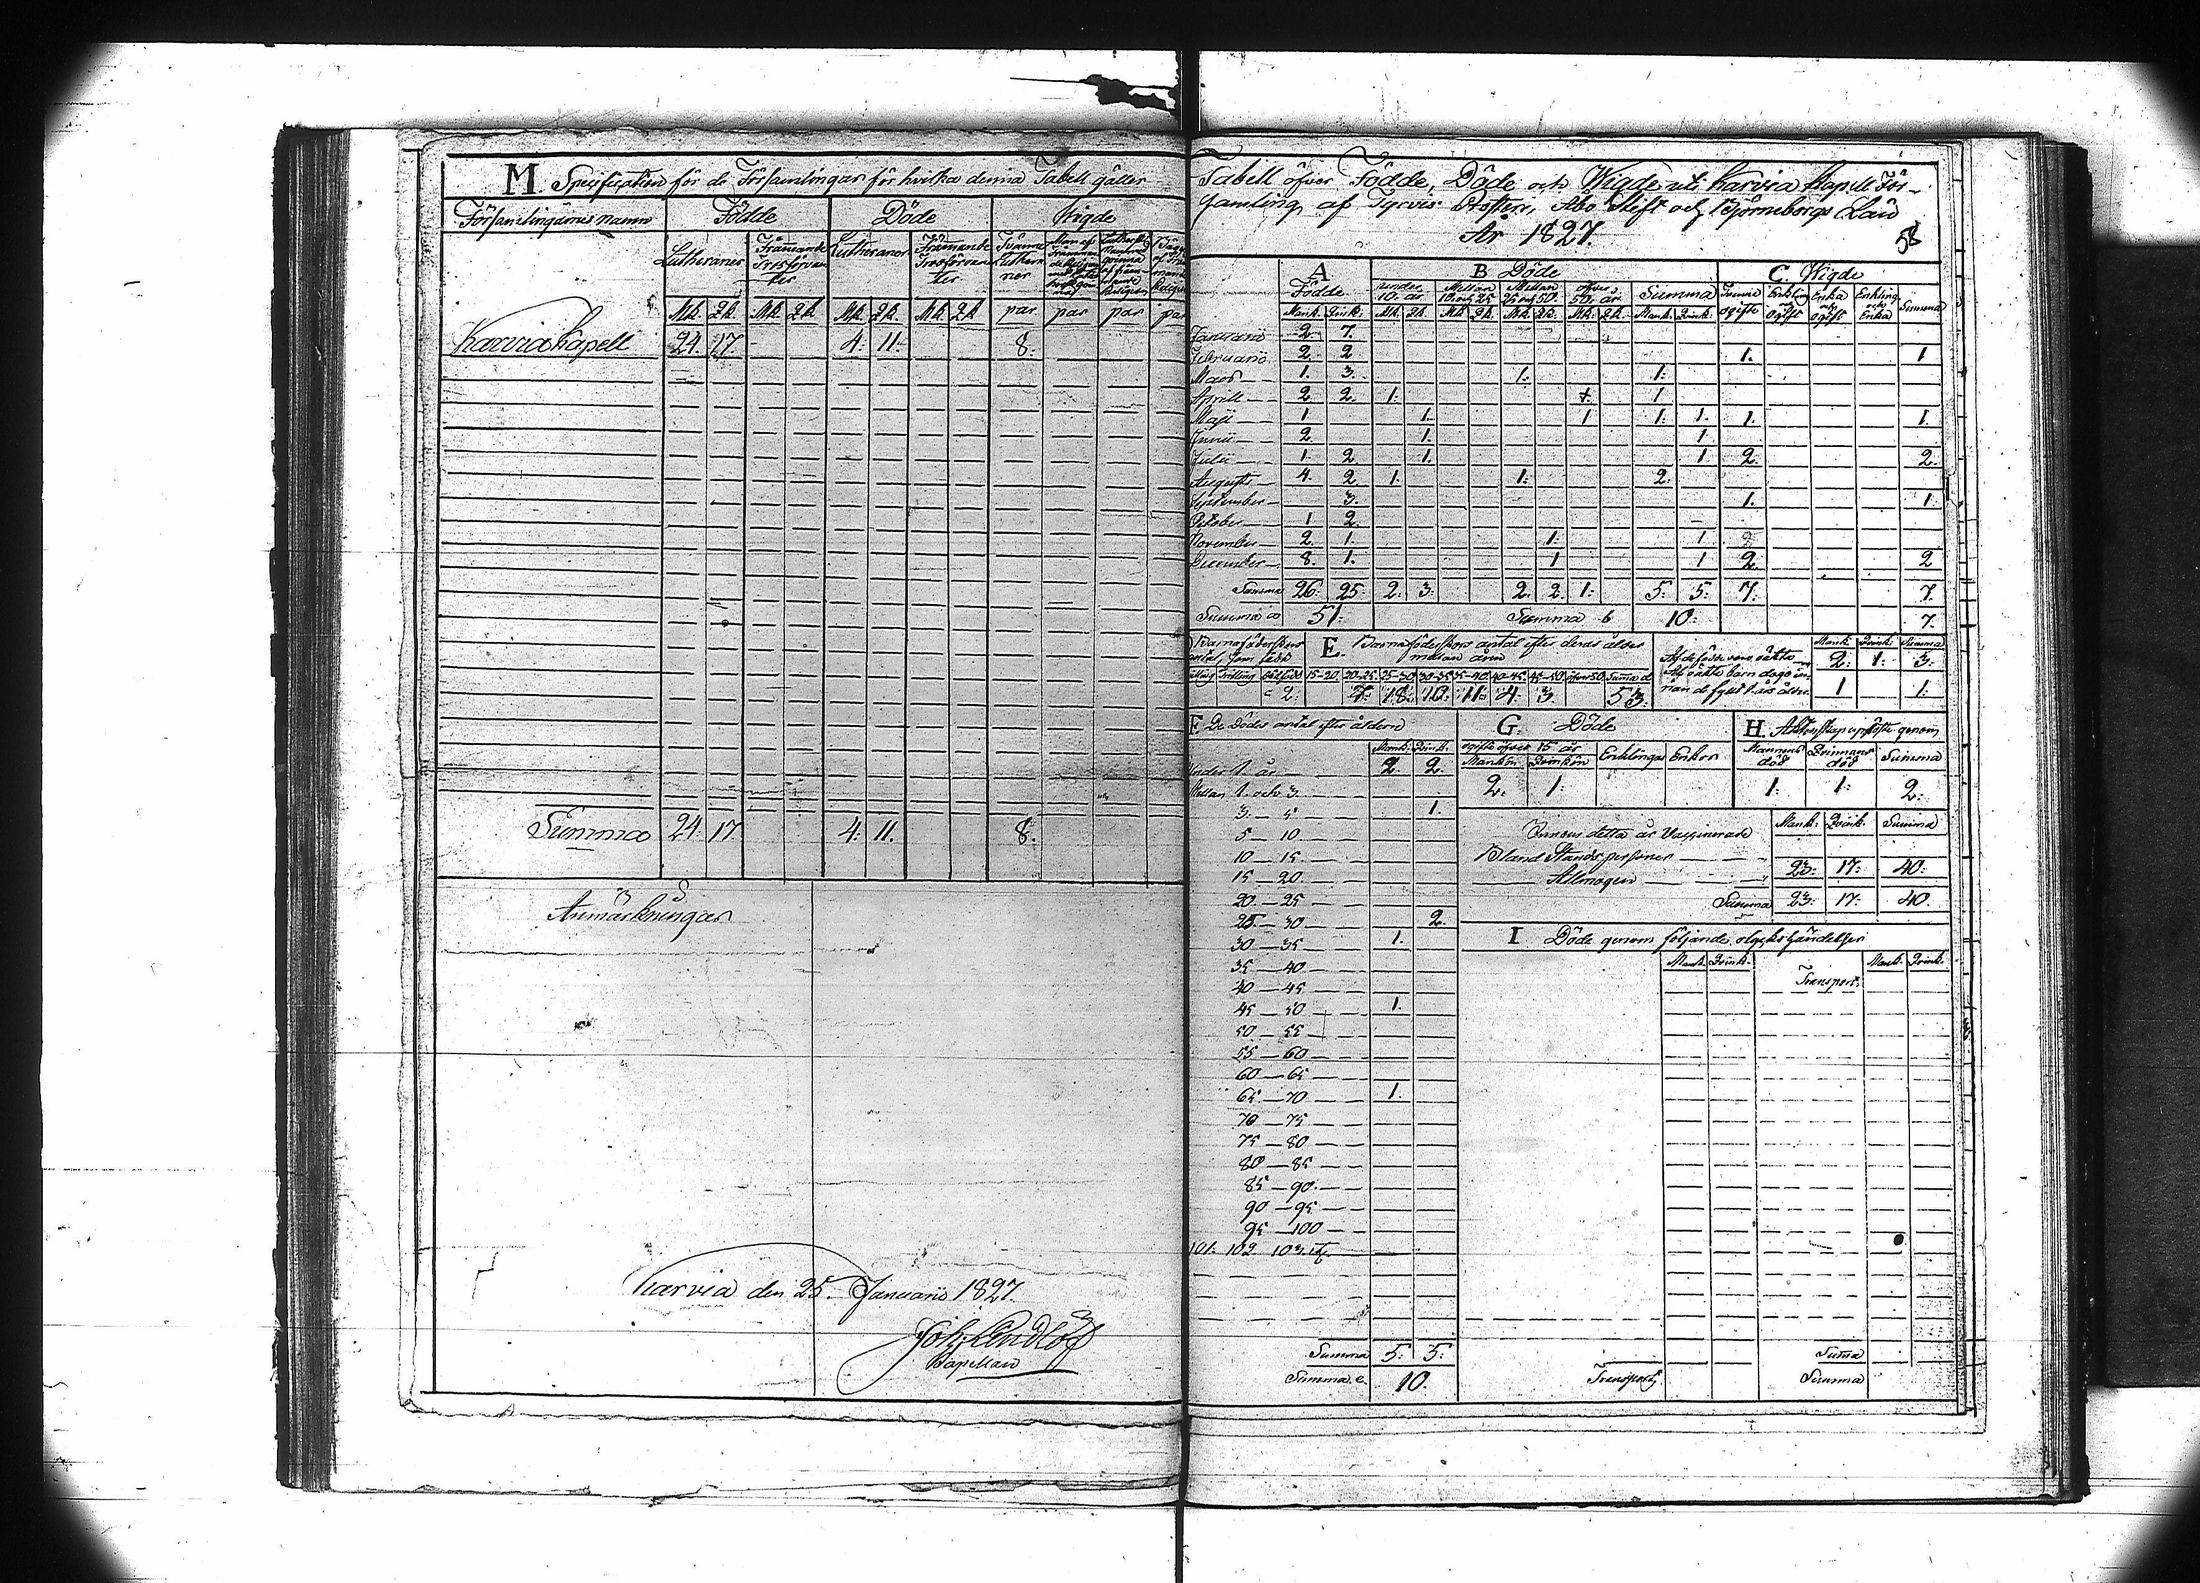 M Specification för de Församlingar för hvilka denna Tabell gäller
Församlingarnes namn Födde Döde Wigde
Lutheraner Främmande Trosförvanter Lutheraner Främmande Trosförvanter Tvänne Lutheraner
Mk. Qk. Mk. Qk. Mk. Qk. Mk. Qk. par par par par
Karvia Kapell 24. 17. 4. 11. 8.
Summa 24. 17. 4. 11. 8.
Anmärkningar
Karvia den 25. Januarii 1827.
Kapellan
Tabell öfver Födde, Döde och Wigde uti Karvia Kapell För-
samling af Tyrvis Prosteri, Åbo Stift och Björneborgs Län
År 1827.
58
A Födde B Döde C. Wigde
under 10. år Mellan 10 och 25 Mellan 25 och 50. öfver 50. år Summa Tvenne ogifte Enkling och Ogift Enka och ogift Enkling och Enka Summa
Mank. Qvink. Mk. Qk. Mk. Qk. Mk. Qk. Mk. Qk. Mank. Qvink.
Januarii 2. 7.
Februarii 2. 2 1. 1
Mars 1. 3. 1. 1.
Aprill 2. 2. 1. 1
Maji 1 1. 1 1. 1. 1. 1.
Junii 2. 1. 1
Julii 1 2. 1. 1 2. 2.
Augusti 4. 2. 1. 1. 2.
September 3. 1. 1.
October 1 2.
November 2. 1. 1. 1
December 8. 1. 1 1 2. 2
Summa 26. 25. 2. 3. 2. 2. 1. 5. 5. 7. 7.
Summa a 51. Summa b 10. 7.
E. Barnaföderskors antal efter deras ålder mellan åren
15-20 20-25 25-30 30-35 35-40 40-45 45-50 öfver 50 Suma d
2. 7. 18. 10. 11. 4. 3. 53.
Mank. Qvink. Summa
Af de födde voro oäkta 2. 1. 3.
Af oäkta barn dogo innan de fyllt 1. års ålder 1 1.
F De Dödes antal efter åldern
Mank. Qvink.
Under 1. år 2. 2.
Mellan 1. och 3.
3. — 5 1.
5 — 10
10 — 15
15 — 20.
20. — 25
25. — 30 2.
30 — 35 1.
35 — 40
40 — 45
45 — 50 1.
50 — 55
55 — 60
60 — 65
65 — 70 1.
70 — 75
75 — 80
80 — 85
85 — 90.
90 — 95
95 — 100
101. 102 103. etc.
Summa 5. 5.
Summa e. 10.
G. Döde
ogifte öfver 15 år Enklingar Enkor
Mankön Qvinkön
2. 1.
H. Äktenskap upplöste genom
Mannens död Qvinnans död Summa
1. 1. 2.
Mank. Qvink. Summa
Innom detta år Vaccinerade
Bland Ståndspersoner
Allmogen 23. 17. 40.
Summa 23. 17. 40.
I Döde genom följande olyckshändelser
Mank. Qvink. Mank. Qvink.
Transport
Summa
Transport Summa